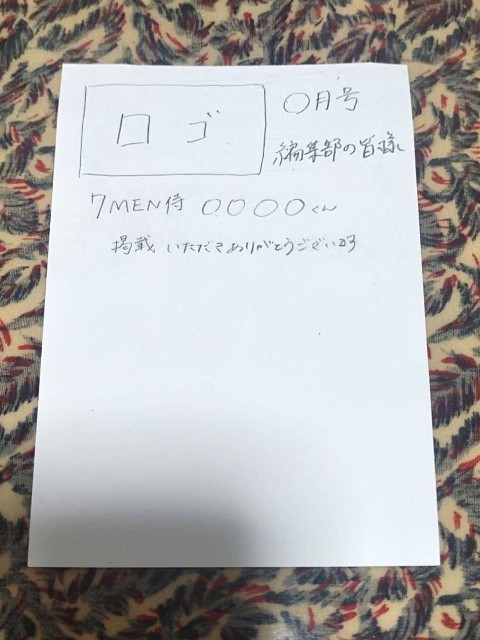 ロゴ
〇月号
編集部の皆様
7MEN侍 〇〇〇〇くん
掲載いただきありがとうございます